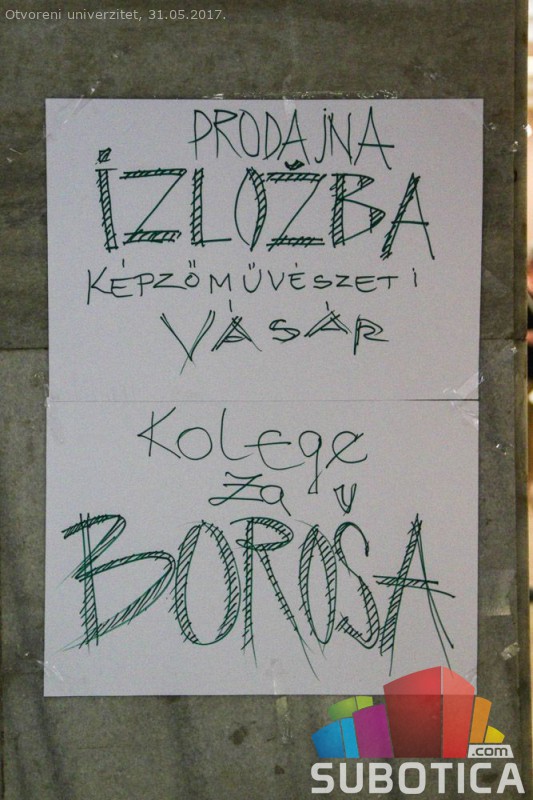 Otvoreni univerzitet, 31.05.2017.
PRODAJNA
IZLOŽBA
KÉPZŐMŰVÉSZETI
VÁSÁR
Kolege
za
BOROŠA
.com
SUBOTICA